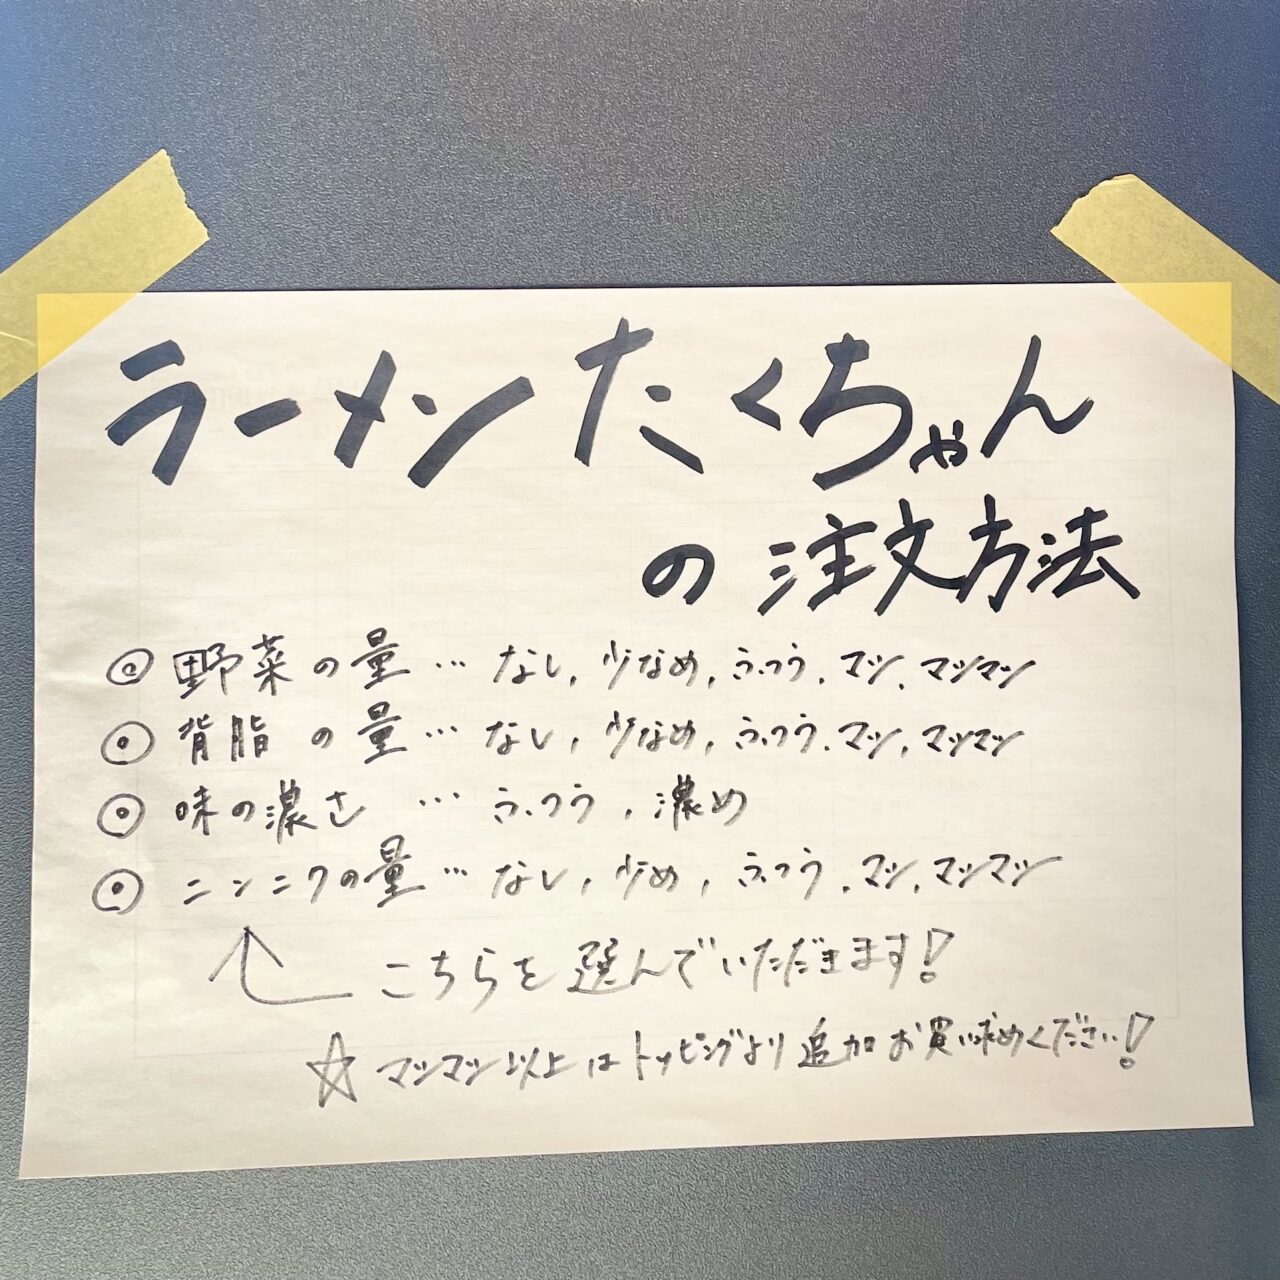 ラーメンたくちゃん
の注文方法
◎ 野菜の量… なし, 少なめ, ふつう, マシ, マシマシ
◎ 背脂の量… なし, 少なめ, ふつう, マシ, マシマシ
◎ 味の濃さ … ふつう, 濃め
◎ ニンニクの量… なし, 少め, ふつう, マシ, マシマシ
こちらを選んでいただきます!
☆ マシマシ以上はトッピングより追加お買い求めください!